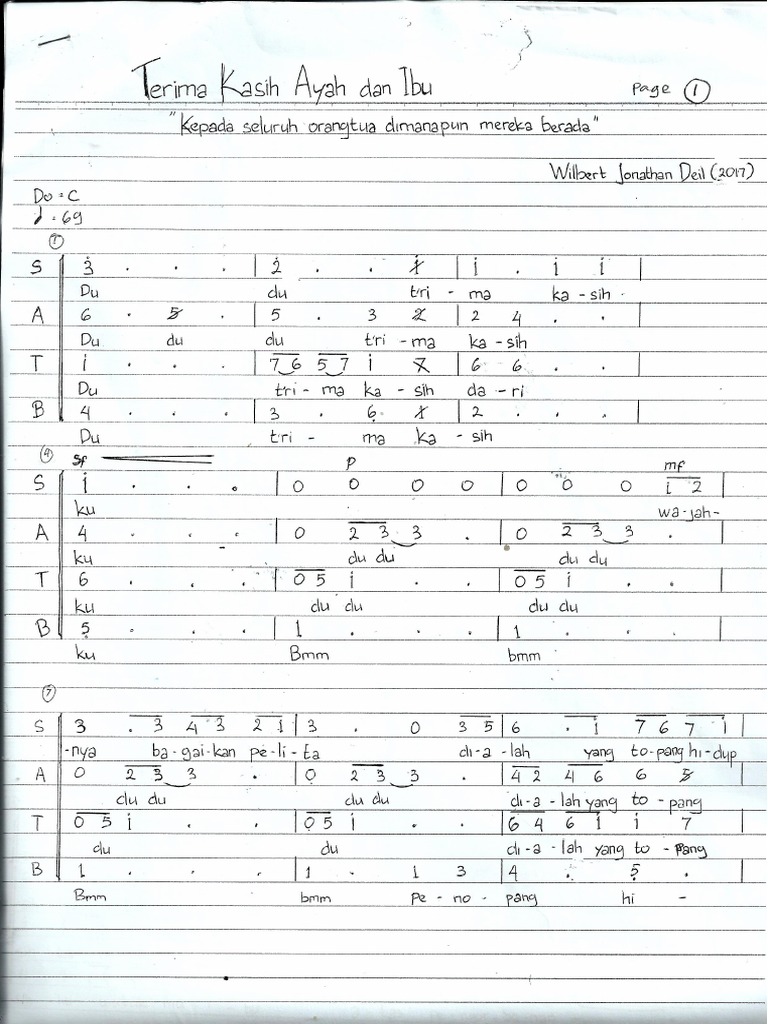 Terima Kasih Ayah dan Ibu
Page 1
"Kepada seluruh orangtua dimanapun mereka berada"
Wilbert Jonathan Deil (2017)
Do = C
♩ = 69
1
S 3̇ . . . | 2̇ . . 1̇ | 1̇ . 1̇ 1̇ |
Du du t'ri - ma ka - sih
A 6 . 5 . | 5 . 3 2 | 2 4 . . |
Du du du t'ri - ma ka - sih
T 1̇ . . . | 7 6 5 7 1̇ 7 | 6 6 . . |
Du t'ri - ma ka - sih da - ri
B 4 . . . | 3 . 6̣ 1 | 2 . . . |
Du t'ri - ma ka - sih
4
sf p mf
S 1̇ . . . | 0 0 0 0 | 0 0 0 1̇ 2̇ |
ku wa-jah-
A 4 . . . | 0 2 3 3 . | 0 2 3 3 . |
ku du du du du
T 6 . . . | 0 5 1̇ . . | 0 5 1̇ . . |
ku du du du du
B 5̣ . . . | 1 . . . | 1 . . . |
ku Bmm bmm
7
S 3 . 3 4 3 2 1 | 3 . 0 3 5 | 6 . 1̇ 7 6 7 1̇ |
-nya ba-gai-kan pe-li-ta di-a-lah yang to-pang hi-dup
A 0 2 3 3 . | 0 2 3 3 . | 4 2 4 6 6 5 |
du du du du di-a-lah yang to-pang
T 0 5 1̇ . . | 0 5 1̇ . . | 6 4 6 1̇ 1̇ 7 |
du du di-a-lah yang to-pang
B 1 . . . | 1 . 1 3 | 4 . 5̣ . |
Bmm bmm pe-no-pang hi -